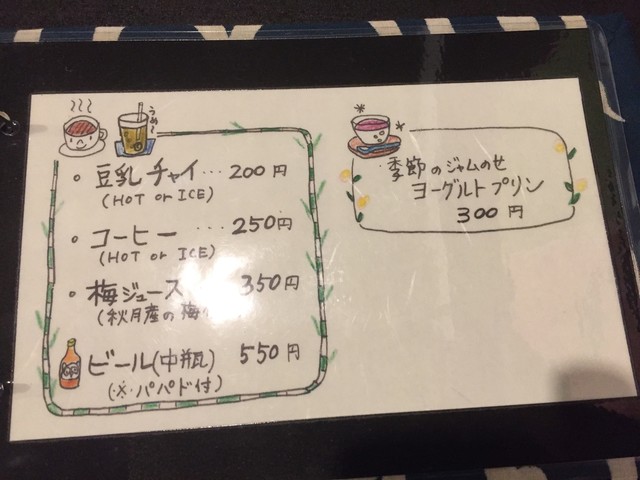 うめ
豆乳チャイ… 200円
(HOT or ICE)
コーヒー …. 250円
(HOT or ICE)
梅ジュース 350円
(秋月産の梅
ビール(中瓶) 550円
(※パパド付)
季節のジャムのせ
ヨーグルトプリン
300円